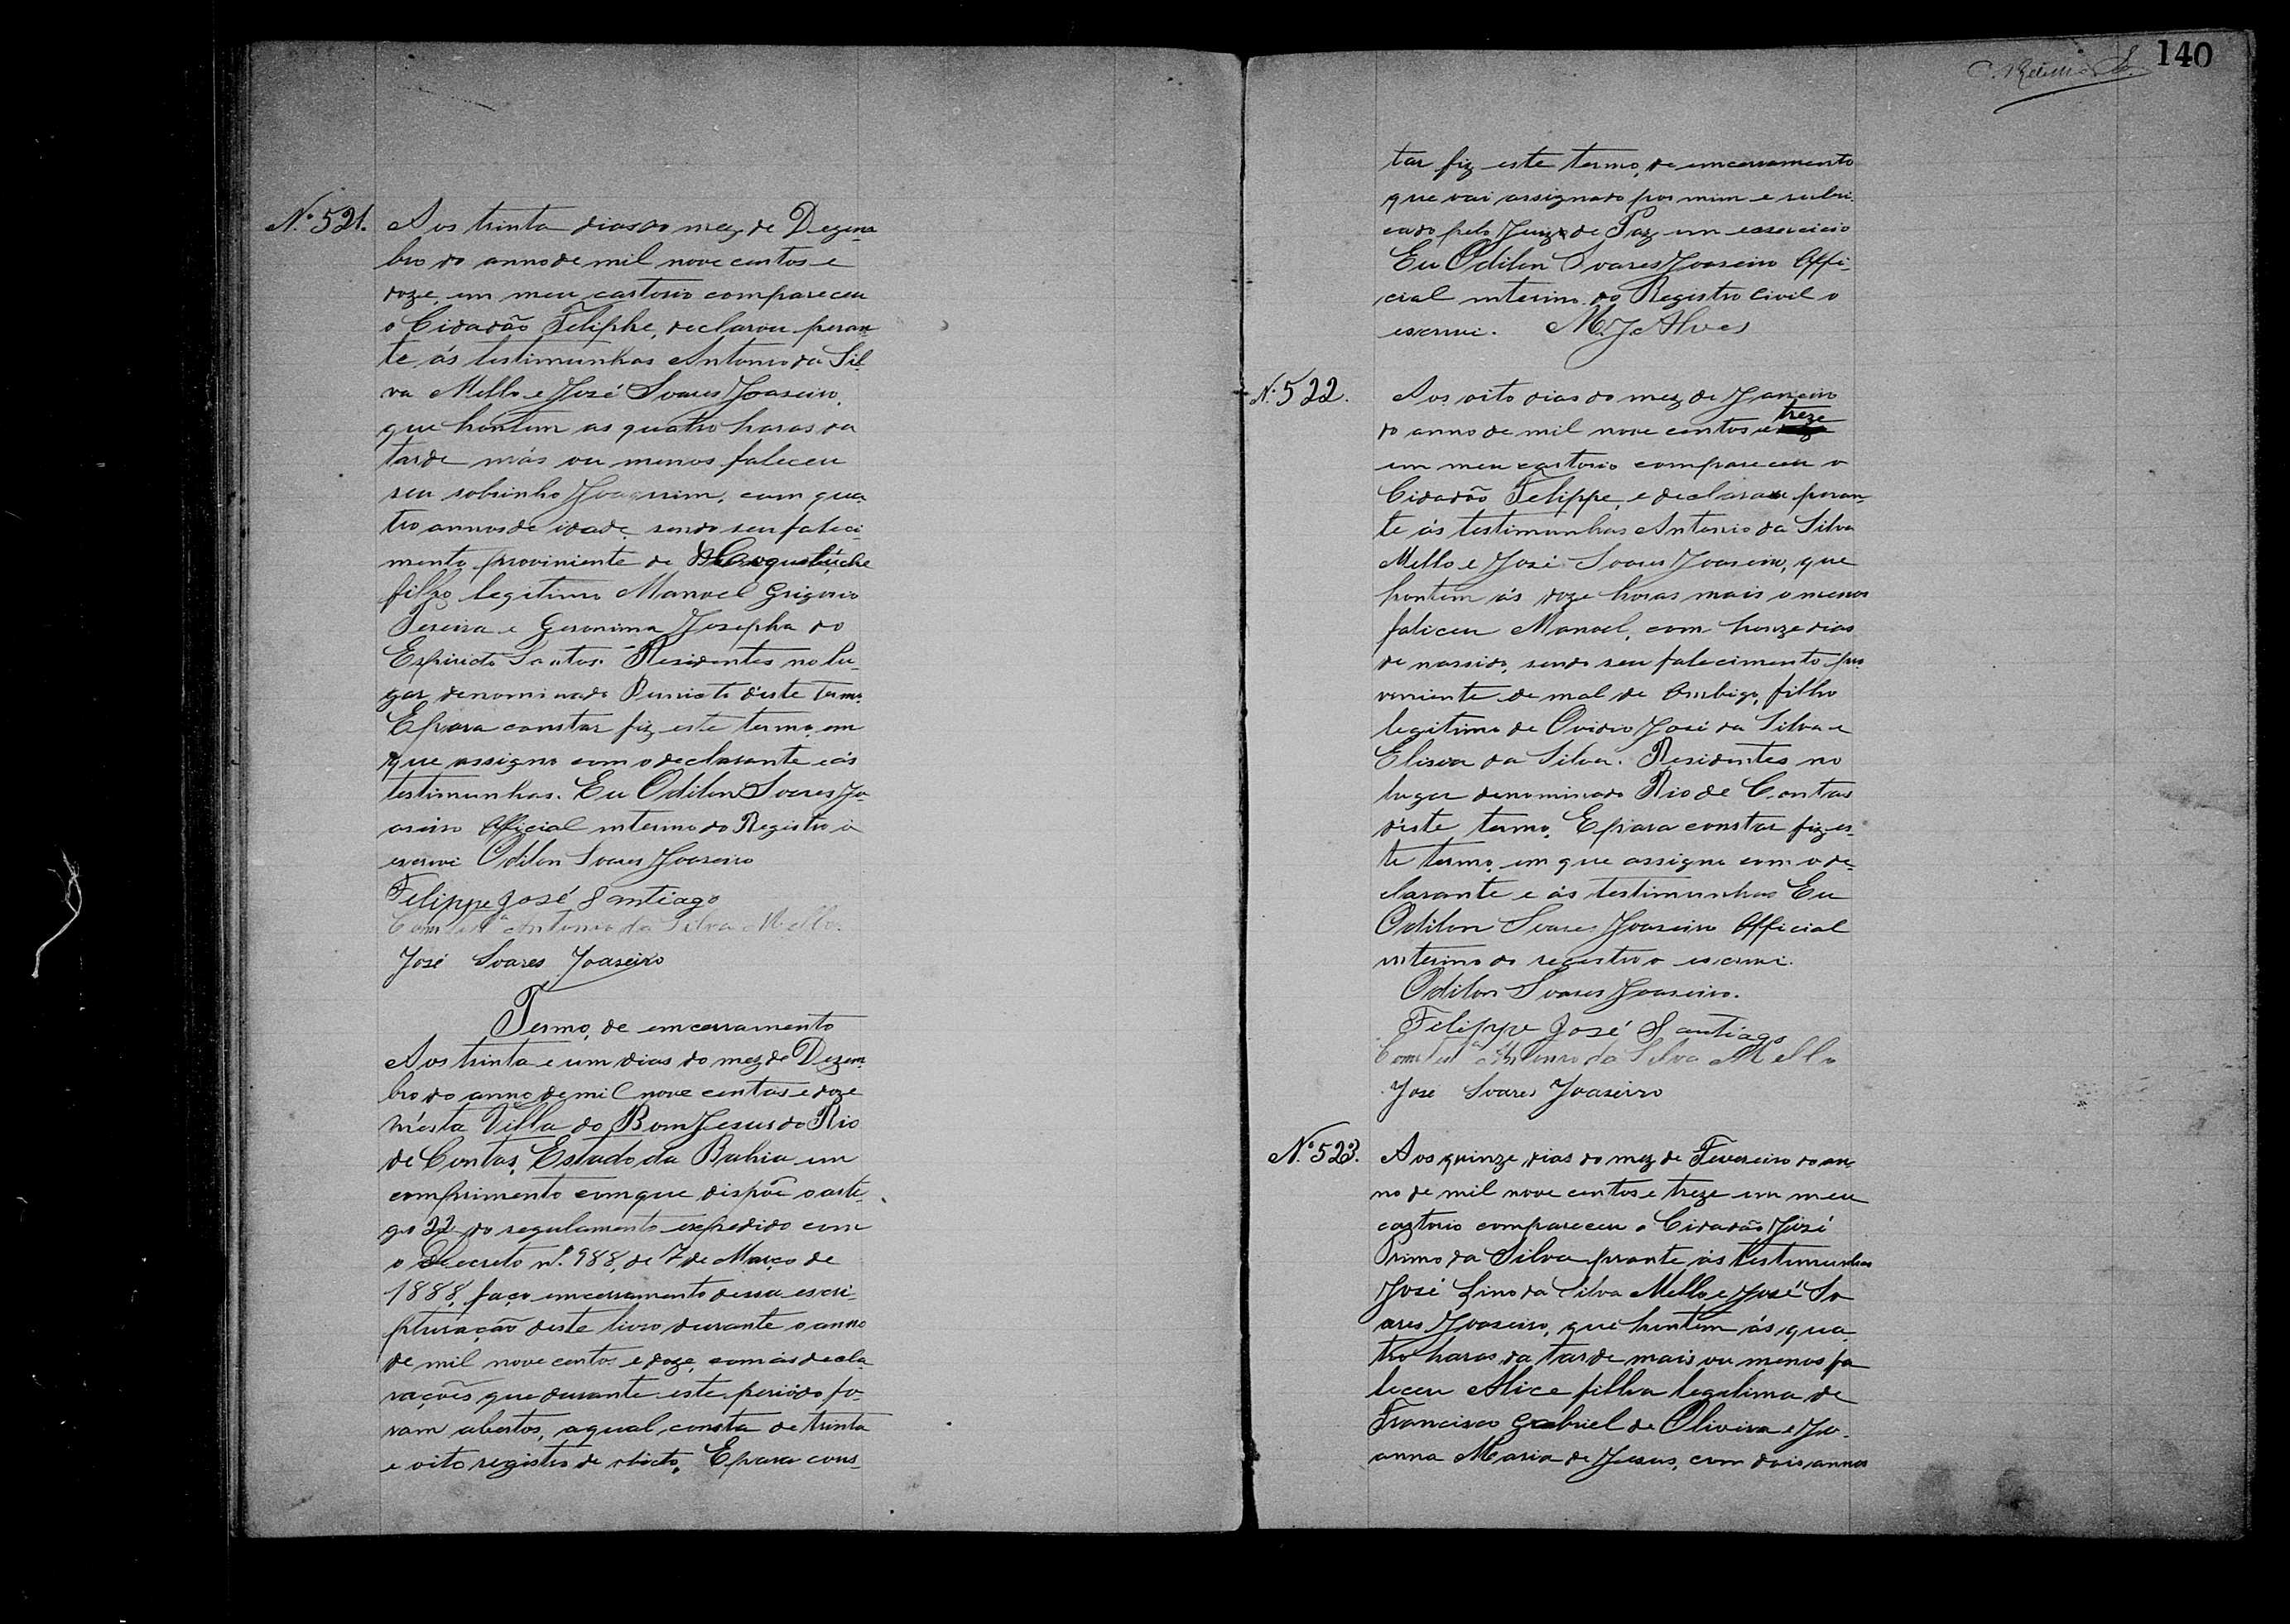 Nº 521. Aos trinta dias do mez de Dezem
bro do anno de mil nove centos e
doze, em meu cartorio compareceu
o Cidadão Feliphe, declarou peran
te ás testimunhas Antonio da Sil
va Mello e José Soares Joaseiro,
que hontem as quatro horas da
tarde más ou menos faleceu
seu sobrinho Joaquim, com qua
tro annos de idade, sendo seu faleci
mento proviniente de Coqueluche
filho legitimo Manoel Grigorio
Pereira e Geronima Josepha do
Espiricto Santos. Residentes no lu-
gar denominado d'este termo.
E para constar fiz este termo, em
que assigno com o declarante e ás
testimunhas. Eu Odilon Soares Jo-
aseiro Official interino do Registro o
escrevi Odilon Soares Joaseiro
Felippe José Santiago
Como testª Antonio da Silva Mello.
José Soares Joaseiro
Termo, de emcerramento
Aos trinta e um dias do mez de Dezem
bro do anno de mil nove centos e doze
n'ésta Villa do Bom Jesus do Rio
de Contas, Estado da Bahia em
comprimento com que dispõe o arti-
go 22 do regulamento expedido com
o Decreto nº 988, de 7 de Março de
1888, faço emcerramento dessa escri-
pturação deste livro durante o anno
de mil nove centos e doze, com ás decla
rações que durante este periódo fo-
ram abertos, a qual consta de trinta
e oito registro de obicto. E para cons-
140
tar fiz este termo, de emcerramento
que vai assignado por mim e rubri
cado pelo Juiz de Paz em exsercicio
Eu Odilon Soares Joaseiro Offi-
cial interino do Registro Civil o
escrevi. M. J. Alves
Nº 522. Aos oito dias do mez de Janeiro
do anno de mil nove centos e treze
em meu cartorio compareceu o
Cidadão Felippe, e declarou peran
te ás testimunhas Antonio da Silva
Mello e José Soares Joaseiro, que
hontem ás doze horas mais o menos
faliceu Manoel, com honze dias
de nassido, sendo seu falecimento pro
veniente de mal de Ombigo, filho
legitimo de Ovidio José da Silva e
da Silva. Residentes no
lugar denominado Rio de Contas
d'éste termo, E para constar fiz es-
te termo, em que assigno com o de-
clarante e ás testimunhas Eu
Odilon Soares Joaseiro Official
interino do registro o escrevi.
Odilon Soares Joaseiro.
Felippe José Santiago
Como testª Antonio da Silva Mello
José Soares Joaseiro
Nº 523. Aos quinze dias do mez de Fevereiro do an-
no de mil nove centos e treze em meu
cartorio compareceu o Cidadão José
Primo da Silva prante ás testimunhas
José Lino da Silva Mello e José So
ares Joaseiro, que hontem ás qua
tro horas da tarde mais ou menos fa
leceu Alice filha legitima de
Francisco Gabriel de Oliveira e Jo-
anna Maria de Jesus, com dois annos